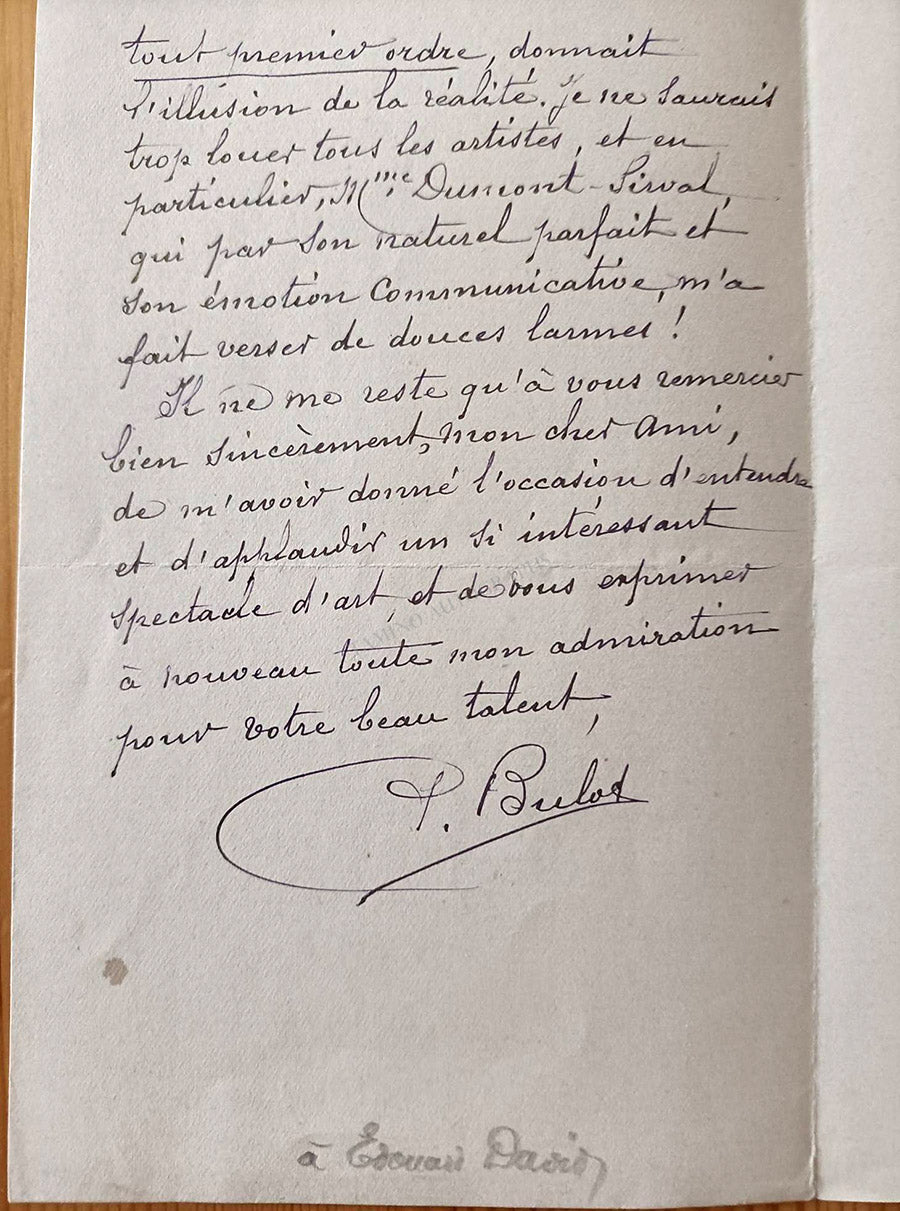 tout premier ordre, donnait
l'illusion de la réalité. Je ne saurais
trop louer tous les artistes, et en
particulier, Mme Dumont-Sirval,
qui par son naturel parfait et
son émotion communicative, m'a
fait verser de douces larmes !
Il ne me reste qu'à vous remercier
bien sincèrement, mon cher ami,
de m'avoir donné l'occasion d'entendre
et d'applaudir un si intéressant
spectacle d'art, et de vous exprimer
à nouveau toute mon admiration
pour votre beau talent,
P. Bulot
à Edouard David